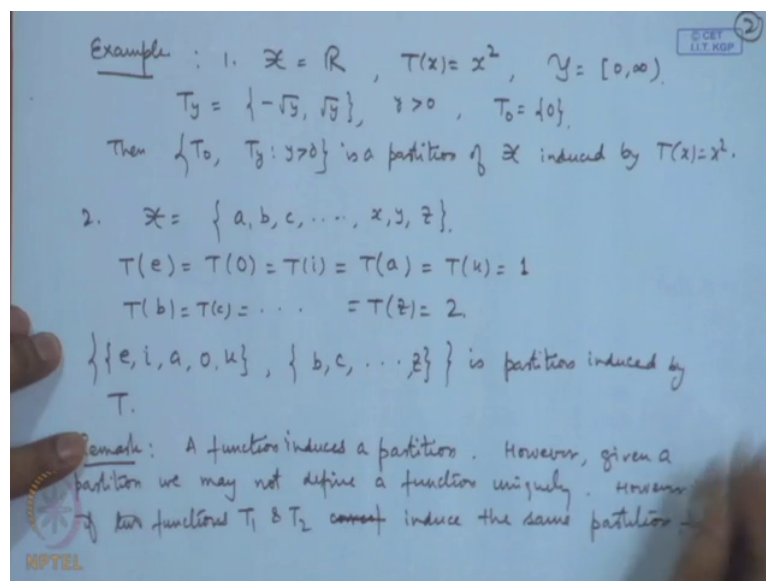 ②
© CET
I.I.T. KGP
Example : 1. 𝒳 = ℝ , T(x) = x², 𝒴 = [0, ∞).
T_y = {-√y, √y}, y > 0 , T_0 = {0}.
Then {T_0, T_y : y > 0} is a partition of 𝒳 induced by T(x) = x².
2. 𝒳 = {a, b, c, ....., x, y, z}.
T(e) = T(0) = T(i) = T(a) = T(u) = 1
T(b) = T(c) = . . . . = T(z) = 2.
{{e, i, a, o, u}, {b, c, ..., z}} is partition induced by
T.
Remark : A function induces a partition. However, given a
partition we may not define a function uniquely. However
if two functions T₁ & T₂ induce the same partition
NPTEL